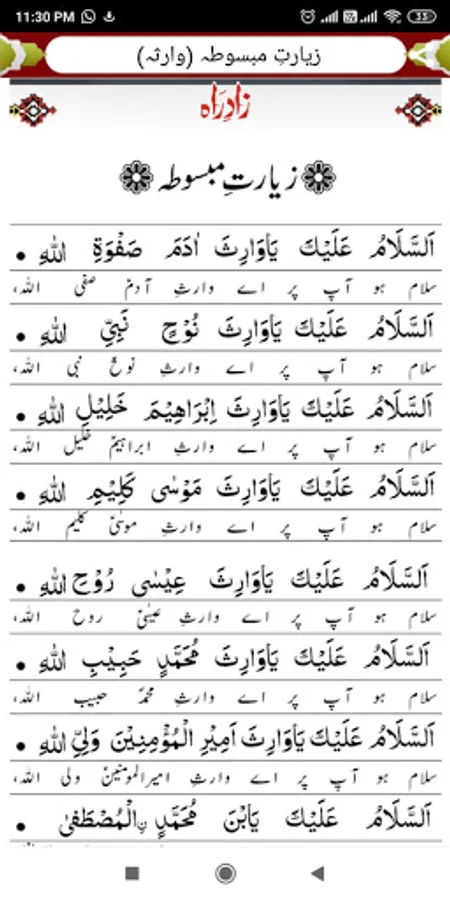 11:30 PM
33
زیارتِ مبسوطہ (وارثہ)
زادِرَاہ
زیارتِ مبسوطہ
اَلسَّلَامُ عَلَیْكَ یَاوَارِثَ اٰدَمَ صَفْوَۃِ اللّٰہِ •
سلام ہو آپ پر اے وارثِ آدمؑ صفی اللہ،
اَلسَّلَامُ عَلَیْكَ یَاوَارِثَ نُوْحٍ نَبِیِّ اللّٰہِ •
سلام ہو آپ پر اے وارثِ نوحؑ نبی اللہ،
اَلسَّلَامُ عَلَیْكَ یَاوَارِثَ اِبْرَاھِیْمَ خَلِیْلِ اللّٰہِ •
سلام ہو آپ پر اے وارثِ ابراہیمؑ خلیل اللہ،
اَلسَّلَامُ عَلَیْكَ یَاوَارِثَ مُوْسٰی کَلِیْمِ اللّٰہِ •
سلام ہو آپ پر اے وارثِ موسٰیؑ کلیم اللہ،
اَلسَّلَامُ عَلَیْكَ یَاوَارِثَ عِیْسٰی رُوْحِ اللّٰہِ •
سلام ہو آپ پر اے وارثِ عیسٰیؑ روح اللہ،
اَلسَّلَامُ عَلَیْكَ یَاوَارِثَ مُحَمَّدٍ حَبِیْبِ اللّٰہِ •
سلام ہو آپ پر اے وارثِ محمدؐ حبیب اللہ،
اَلسَّلَامُ عَلَیْكَ یَاوَارِثَ اَمِیْرِ الْمُؤْمِنِیْنَ وَلِیِّ اللّٰہِ •
سلام ہو آپ پر اے وارثِ امیرالمومنینؑ ولی اللہ،
اَلسَّلَامُ عَلَیْكَ یَابْنَ مُحَمَّدٍ نِ الْمُصْطَفٰی •